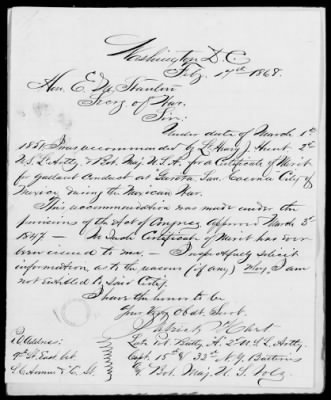 Washington D.C.
Feby. 17th 1868.
Hon. E. M. Stanton
Secry of War.
Sir:
Under date of March 1st
185 I was recommended by Lt Henry J. Hunt 2nd
U.S. Artilly & Bvt. Maj. U.S.A. for a Certificate of Merit
for gallant Conduct at Garita San Cosme City of
Mexico during the Mexican War.
This recommendation was made under the
provisions of the Act of Congress approved March 3d
1847 — No Such Certificate of Merit has ever
been issued to me. — I respectfully solicit
information, as to the reasons (if any) Why I am
not entitled to Said Certif.
I have the honor to be
Your Very Obdt. Servt.
Patrick Hart
Late Pvt. Batty A. 2nd U.S. Arty
Capt. 15th & 32d N.Y. Batteries
& Bvt. Maj. U.S. Volrs.
P.O. Address:
9th St. East bet.
S.C. Avenue & C. St.